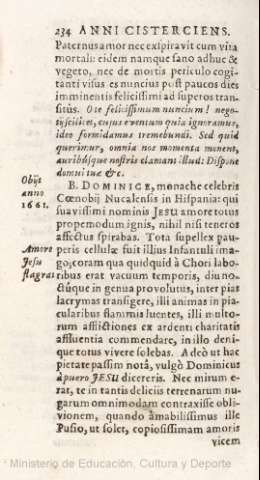 234 ANNI CISTERCIENS.
Paternus amor nec expiravit cum vita
mortali: eidem namque sano adhuc &
vegeto, nec de mortis periculo cogi-
tanti visus es nuncius post paucos dies
imminentis felicissimi ad superos tran-
situs. O te felicissimum nuncium! nego-
tiū scilicet, cujus eventum quia ignoramus,
ideo formidamus tremebundi. Sed quid
querimur, omnia nos momenta monent,
auribúsque nostris clamant illud: Dispone
domui tuæ &c.
Obijt
anno
1661.
B. DOMINICE, monache celebris
Cœnobij Nucalensis in Hispania: qui
suavissimi nominis JESU amore totus
propemodum ignis, nihil nisi teneros
affectus spirabas. Tota supellex pau-
Amore
Jesu
flagrat
peris cellulæ fuit illius Infantuli ima-
go, coram qua quidquid à Chori labo-
ribus erat vacuum temporis, diu no-
ctúque in genua provolutus, inter pias
lacrymas transigere, illi animas in pia-
cularibus flammis luentes, illi multo-
rum afflictiones ex ardenti charitatis
affluentia commendare, in illo deni-
que totus vivere solebas. Adeò ut hac
pietate passim notâ, vulgò Dominicus
à puero JESU dicereris. Nec mirum e-
rat, te in tantis deliciis terrenarum nu-
garum omnimodam contraxisse obli-
vionem, quando amabilissimus ille
Pusio, ut solet, copiosissimam amoris
vicem
Ministerio de Educación, Cultura y Deporte